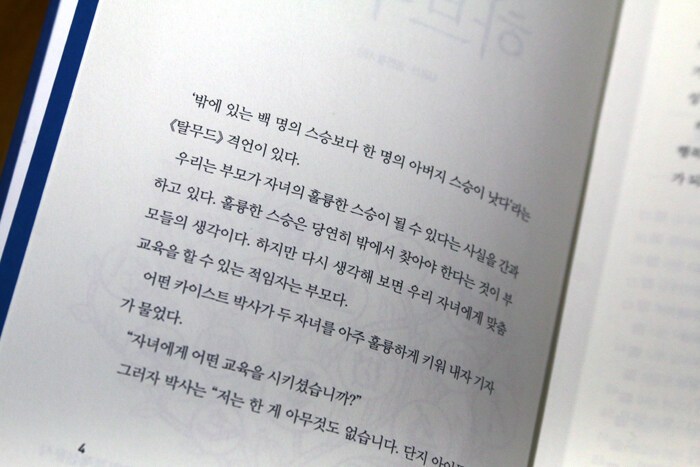 하브
'밖에 있는 백 명의 스승보다 한 명의 아버지 스승이 낫다'라는
《탈무드》 격언이 있다.
우리는 부모가 자녀의 훌륭한 스승이 될 수 있다는 사실을 간과
하고 있다. 훌륭한 스승은 당연히 밖에서 찾아야 한다는 것이 부
모들의 생각이다. 하지만 다시 생각해 보면 우리 자녀에게 맞춤
교육을 할 수 있는 적임자는 부모다.
어떤 카이스트 박사가 두 자녀를 아주 훌륭하게 키워 내자 기자
가 물었다.
"자녀에게 어떤 교육을 시키셨습니까?"
그러자 박사는 "저는 한 게 아무것도 없습니다. 단지
4
가 되